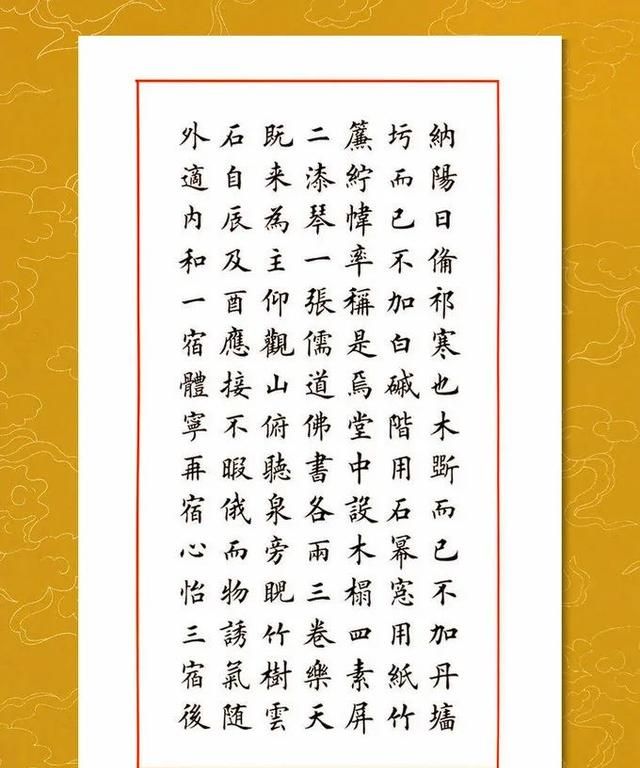 納陽日俻祁寒也木斲而已不加丹墻
圬而已不加白磩階用石冪窓用紙竹
簾紵幃率稱是焉堂中設木榻四素屏
二漆琴一張儒道佛書各兩三卷樂天
既来為主仰觀山俯聽泉旁睨竹樹雲
石自辰及酉應接不暇俄而物誘氣随
外適内和一宿體寧再宿心怡三宿後